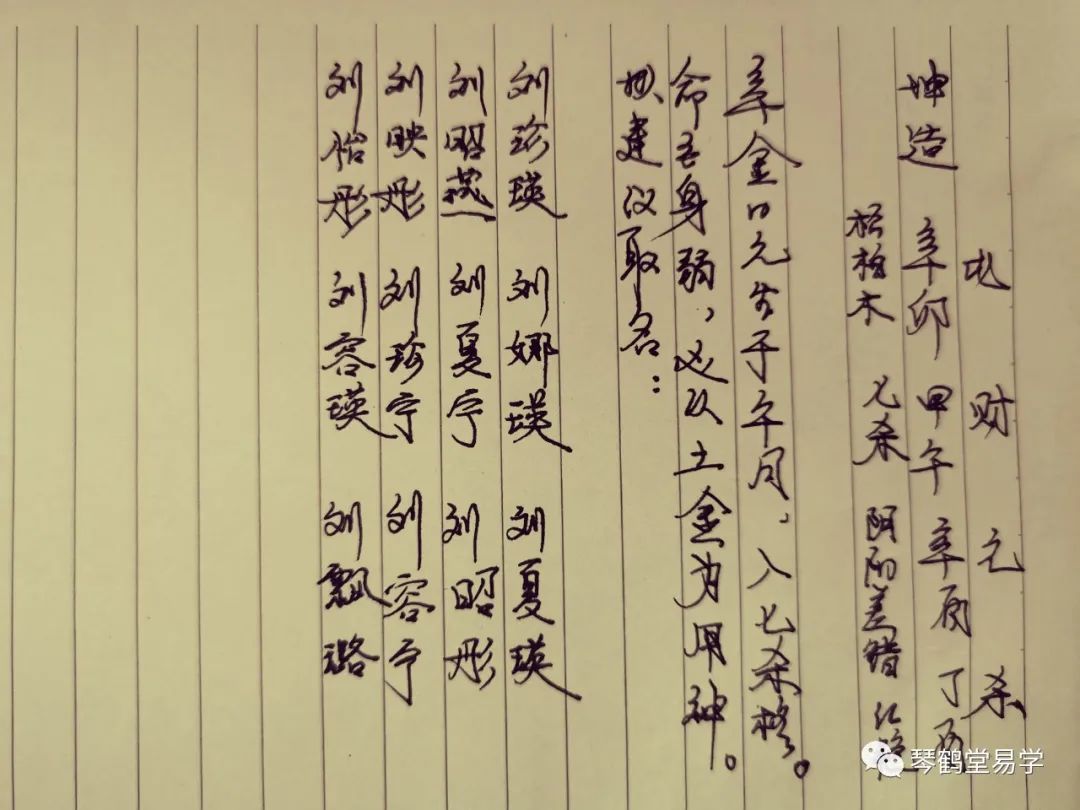 比 财 元 杀
坤造 辛卯 甲午 辛酉 丁酉
松柏木 七杀 阴阳差错 红艳
辛金日元生于午月，入七杀格。
命身弱，必以土金为用神。
建议取名：
刘珍瑛 刘娜瑛 刘夏瑛
刘昭燕 刘夏宁 刘昭彤
刘映彤 刘珍宁 刘容宁
刘怡彤 刘容瑛 刘飘璐
琴鹤堂易学